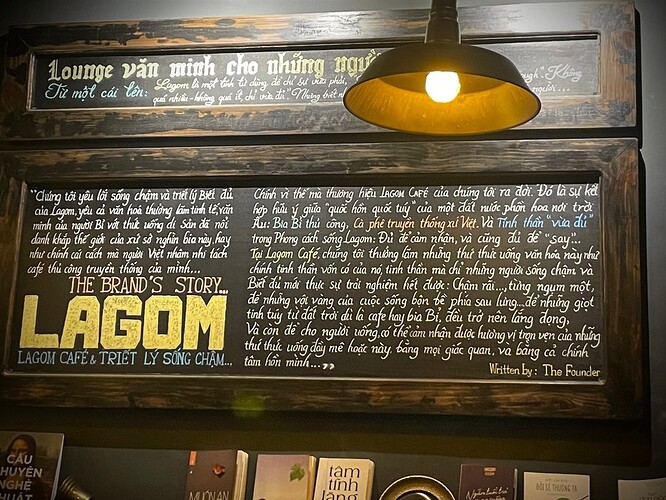 Lounge văn minh cho những ngư
Từ một cái tên: Lagom là một tính từ dùng để chỉ sự vừa phải, ough". Không
quá nhiều - không quá ít, chỉ vừa đủ." Những triết người...
"Chúng tôi yêu lối sống chậm và triết lý Biết đủ
của Lagom, yêu cả văn hoá thưởng lãm tinh tế, văn
minh của người Bỉ với thức uống di Sản đã nổi
danh khắp thế giới của xứ sở nghìn bia này, hay
như chính cái cách mà người Việt nhâm nhi tách
café thủ công truyền thống của mình...
THE BRAND'S STORY...
LAGOM
LAGOM CAFÉ & TRIẾT LÝ SỐNG CHẬM...
Chính vì thế mà thương hiệu LAGOM CAFÉ của chúng tôi ra đời. Đó là sự kết
hợp hữu ý giữa "quốc hồn quốc tuý" của một đất nước phồn hoa nơi trời
Âu: Bia Bỉ thủ công, Cà phê truyền thống xứ Việt. Và Tinh thần "vừa đủ"
trong Phong cách sống Lagom: Đủ để cảm nhận, và cũng đủ để "say"...
Tại Lagom Café, chúng tôi thưởng lãm những thứ thức uống văn hóa này như
chính tinh thần vốn có của nó, tinh thần mà chỉ những người sống chậm và
Biết đủ mới thực sự trải nghiệm hết được: Chậm rãi..., từng ngụm một,
để những vội vàng của cuộc sống bộn bề phía sau lưng...để những giọt
tinh túy từ đất trời dù là cafe hay bia Bỉ, đều trở nên lắng đọng,
Và còn để cho người uống có thể cảm nhận được hương vị trọn vẹn của những
thứ thức uống đầy mê hoặc này, bằng mọi giác quan, và bằng cả chính
tâm hồn mình..."
Written by: The Founder
CÂU
CHUYỆN
NGHỆ
THUẬT
MUÔN AN
tâm
tĩnh
lặng
ĐỜI KẺ THƯỜNG TA